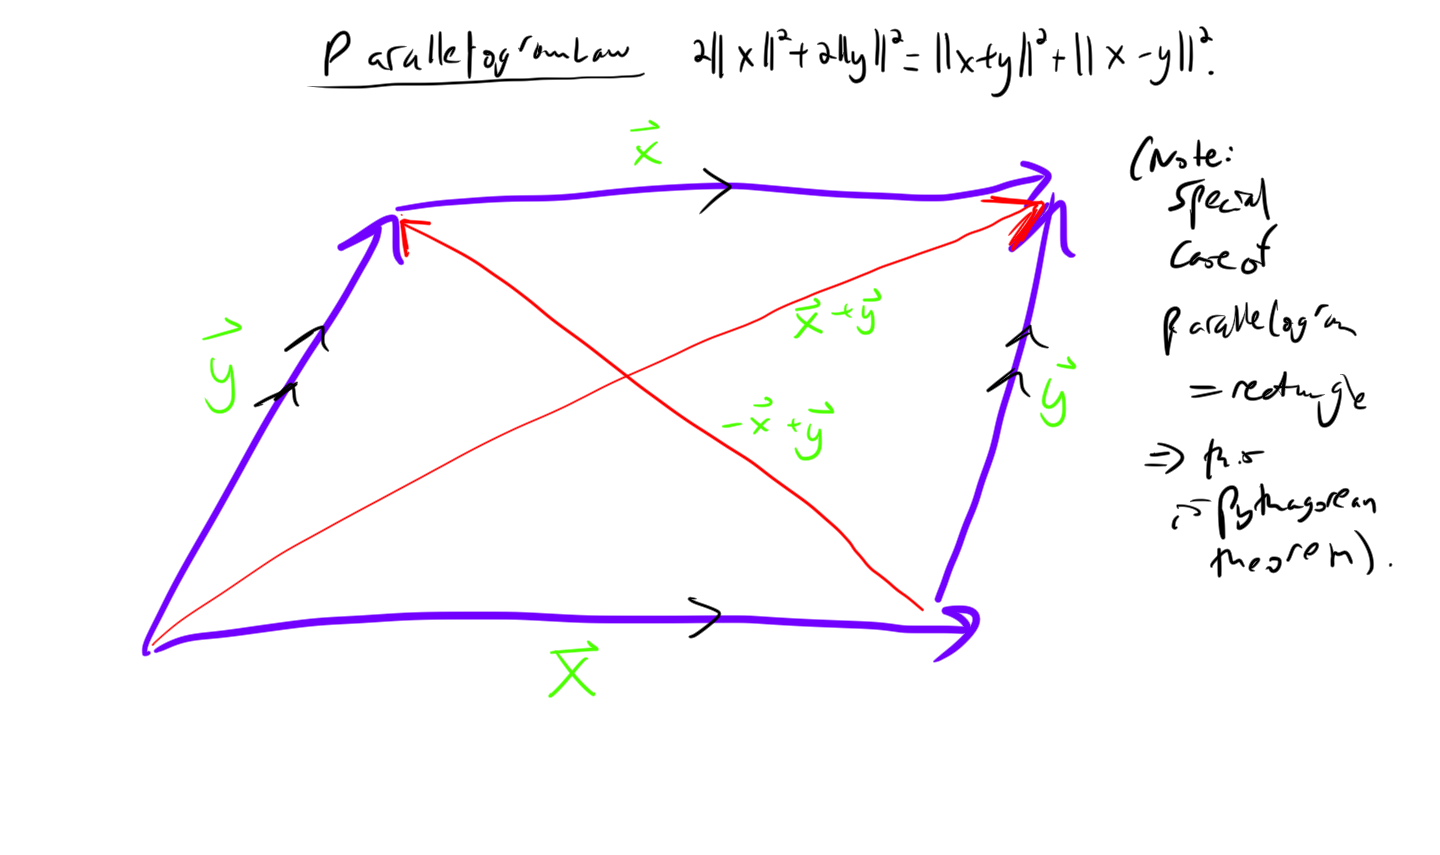 Parallelogram Law 2||x||²+2||y||²=||x+y||²+||x-y||².
x⃗
(Note:
special
case of
parallelogram
= rectangle
⇒ this
is Pythagorean
theorem).
x⃗+y⃗
y⃗
-x⃗+y⃗
y⃗
x⃗